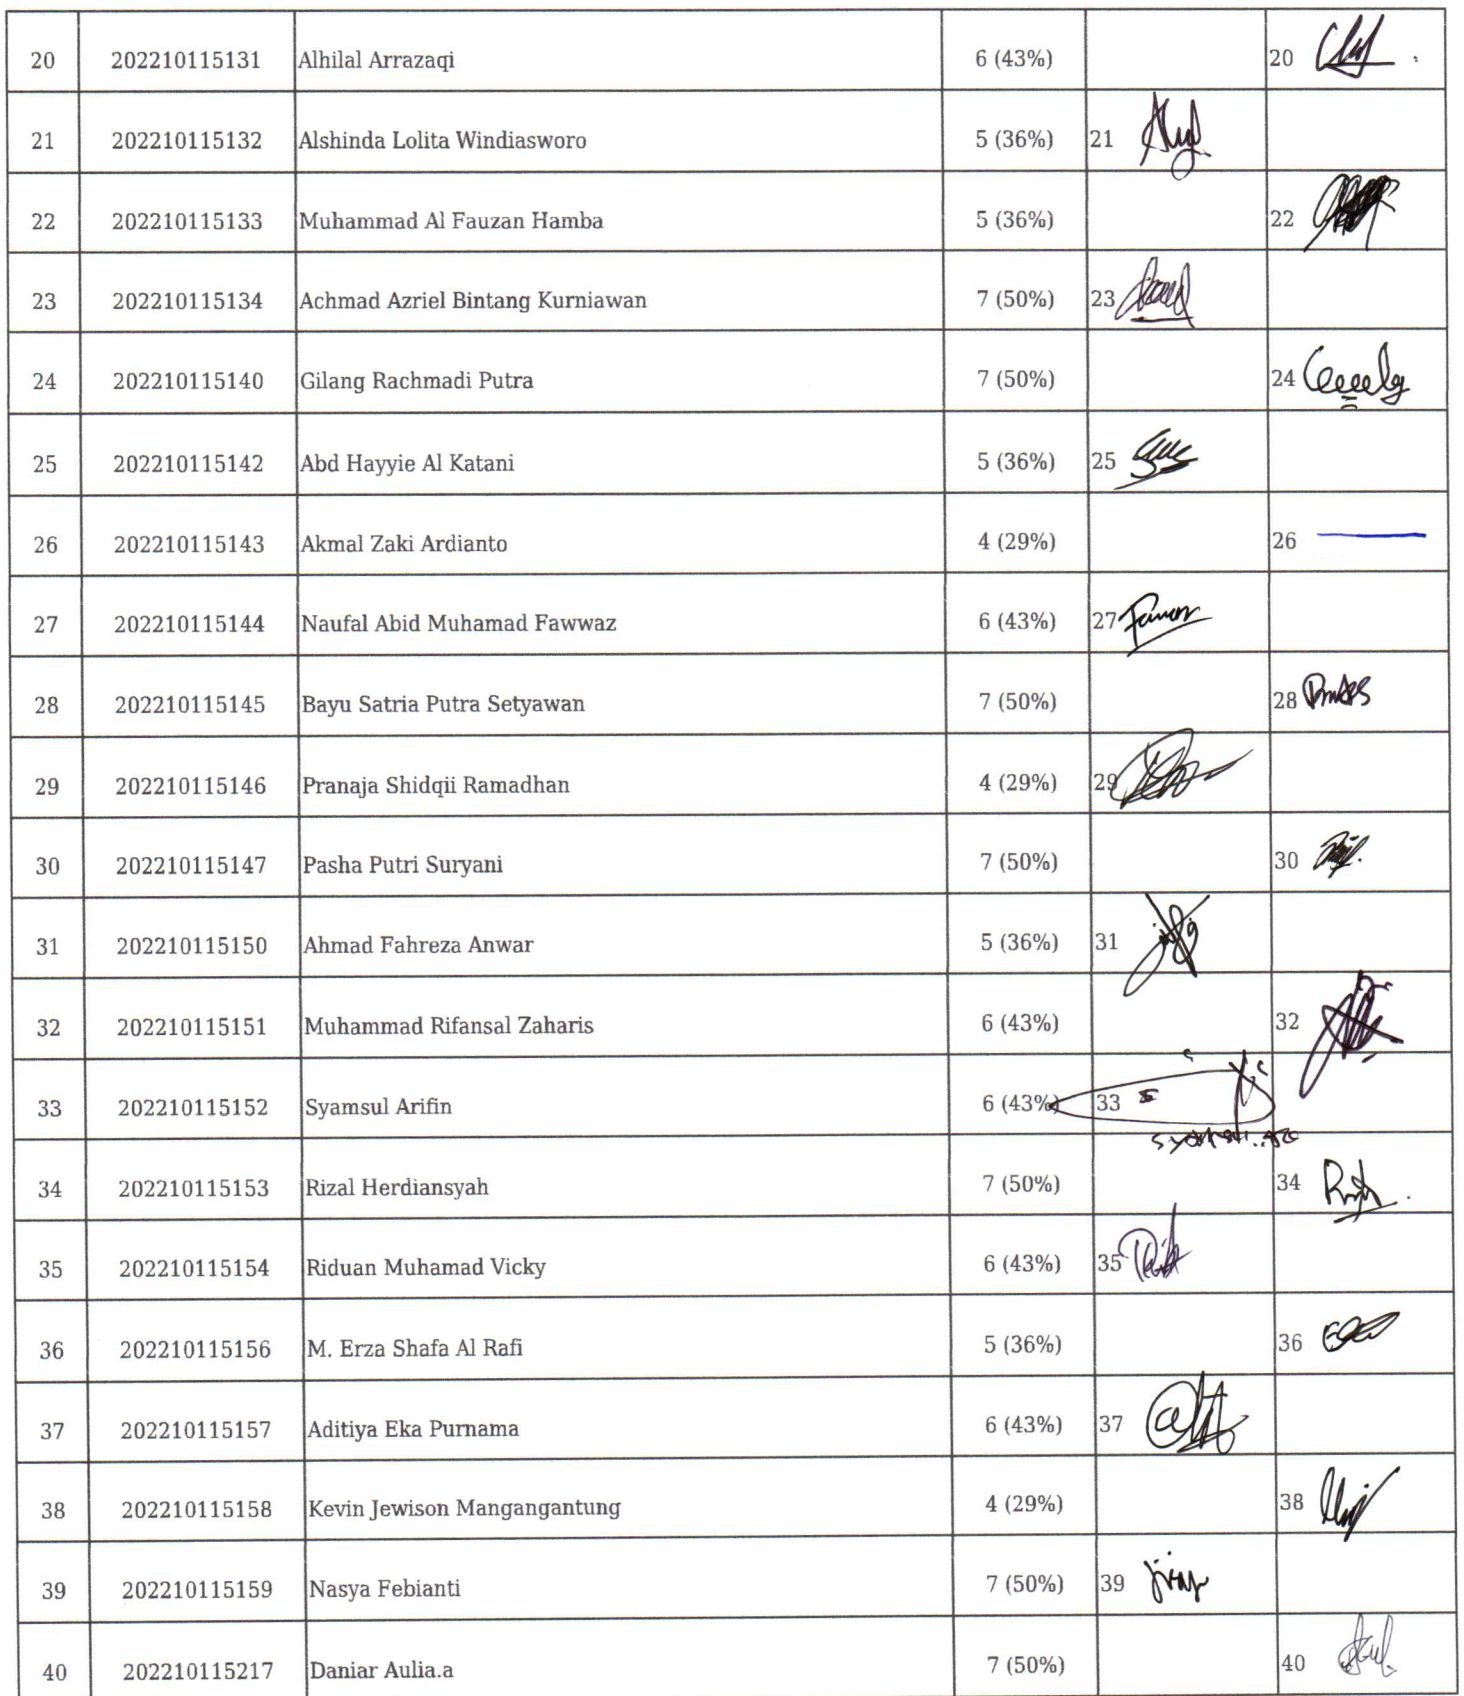 20 202210115131 Alhilal Arrazaqi 6 (43%) 20
21 202210115132 Alshinda Lolita Windiasworo 5 (36%) 21
22 202210115133 Muhammad Al Fauzan Hamba 5 (36%) 22
23 202210115134 Achmad Azriel Bintang Kurniawan 7 (50%) 23
24 202210115140 Gilang Rachmadi Putra 7 (50%) 24
25 202210115142 Abd Hayyie Al Katani 5 (36%) 25
26 202210115143 Akmal Zaki Ardianto 4 (29%) 26
27 202210115144 Naufal Abid Muhamad Fawwaz 6 (43%) 27
28 202210115145 Bayu Satria Putra Setyawan 7 (50%) 28
29 202210115146 Pranaja Shidqii Ramadhan 4 (29%) 29
30 202210115147 Pasha Putri Suryani 7 (50%) 30
31 202210115150 Ahmad Fahreza Anwar 5 (36%) 31
32 202210115151 Muhammad Rifansal Zaharis 6 (43%) 32
33 202210115152 Syamsul Arifin 6 (43%) 33
34 202210115153 Rizal Herdiansyah 7 (50%) 34
35 202210115154 Riduan Muhamad Vicky 6 (43%) 35
36 202210115156 M. Erza Shafa Al Rafi 5 (36%) 36
37 202210115157 Aditiya Eka Purnama 6 (43%) 37
38 202210115158 Kevin Jewison Mangangantung 4 (29%) 38
39 202210115159 Nasya Febianti 7 (50%) 39
40 202210115217 Daniar Aulia.a 7 (50%) 40